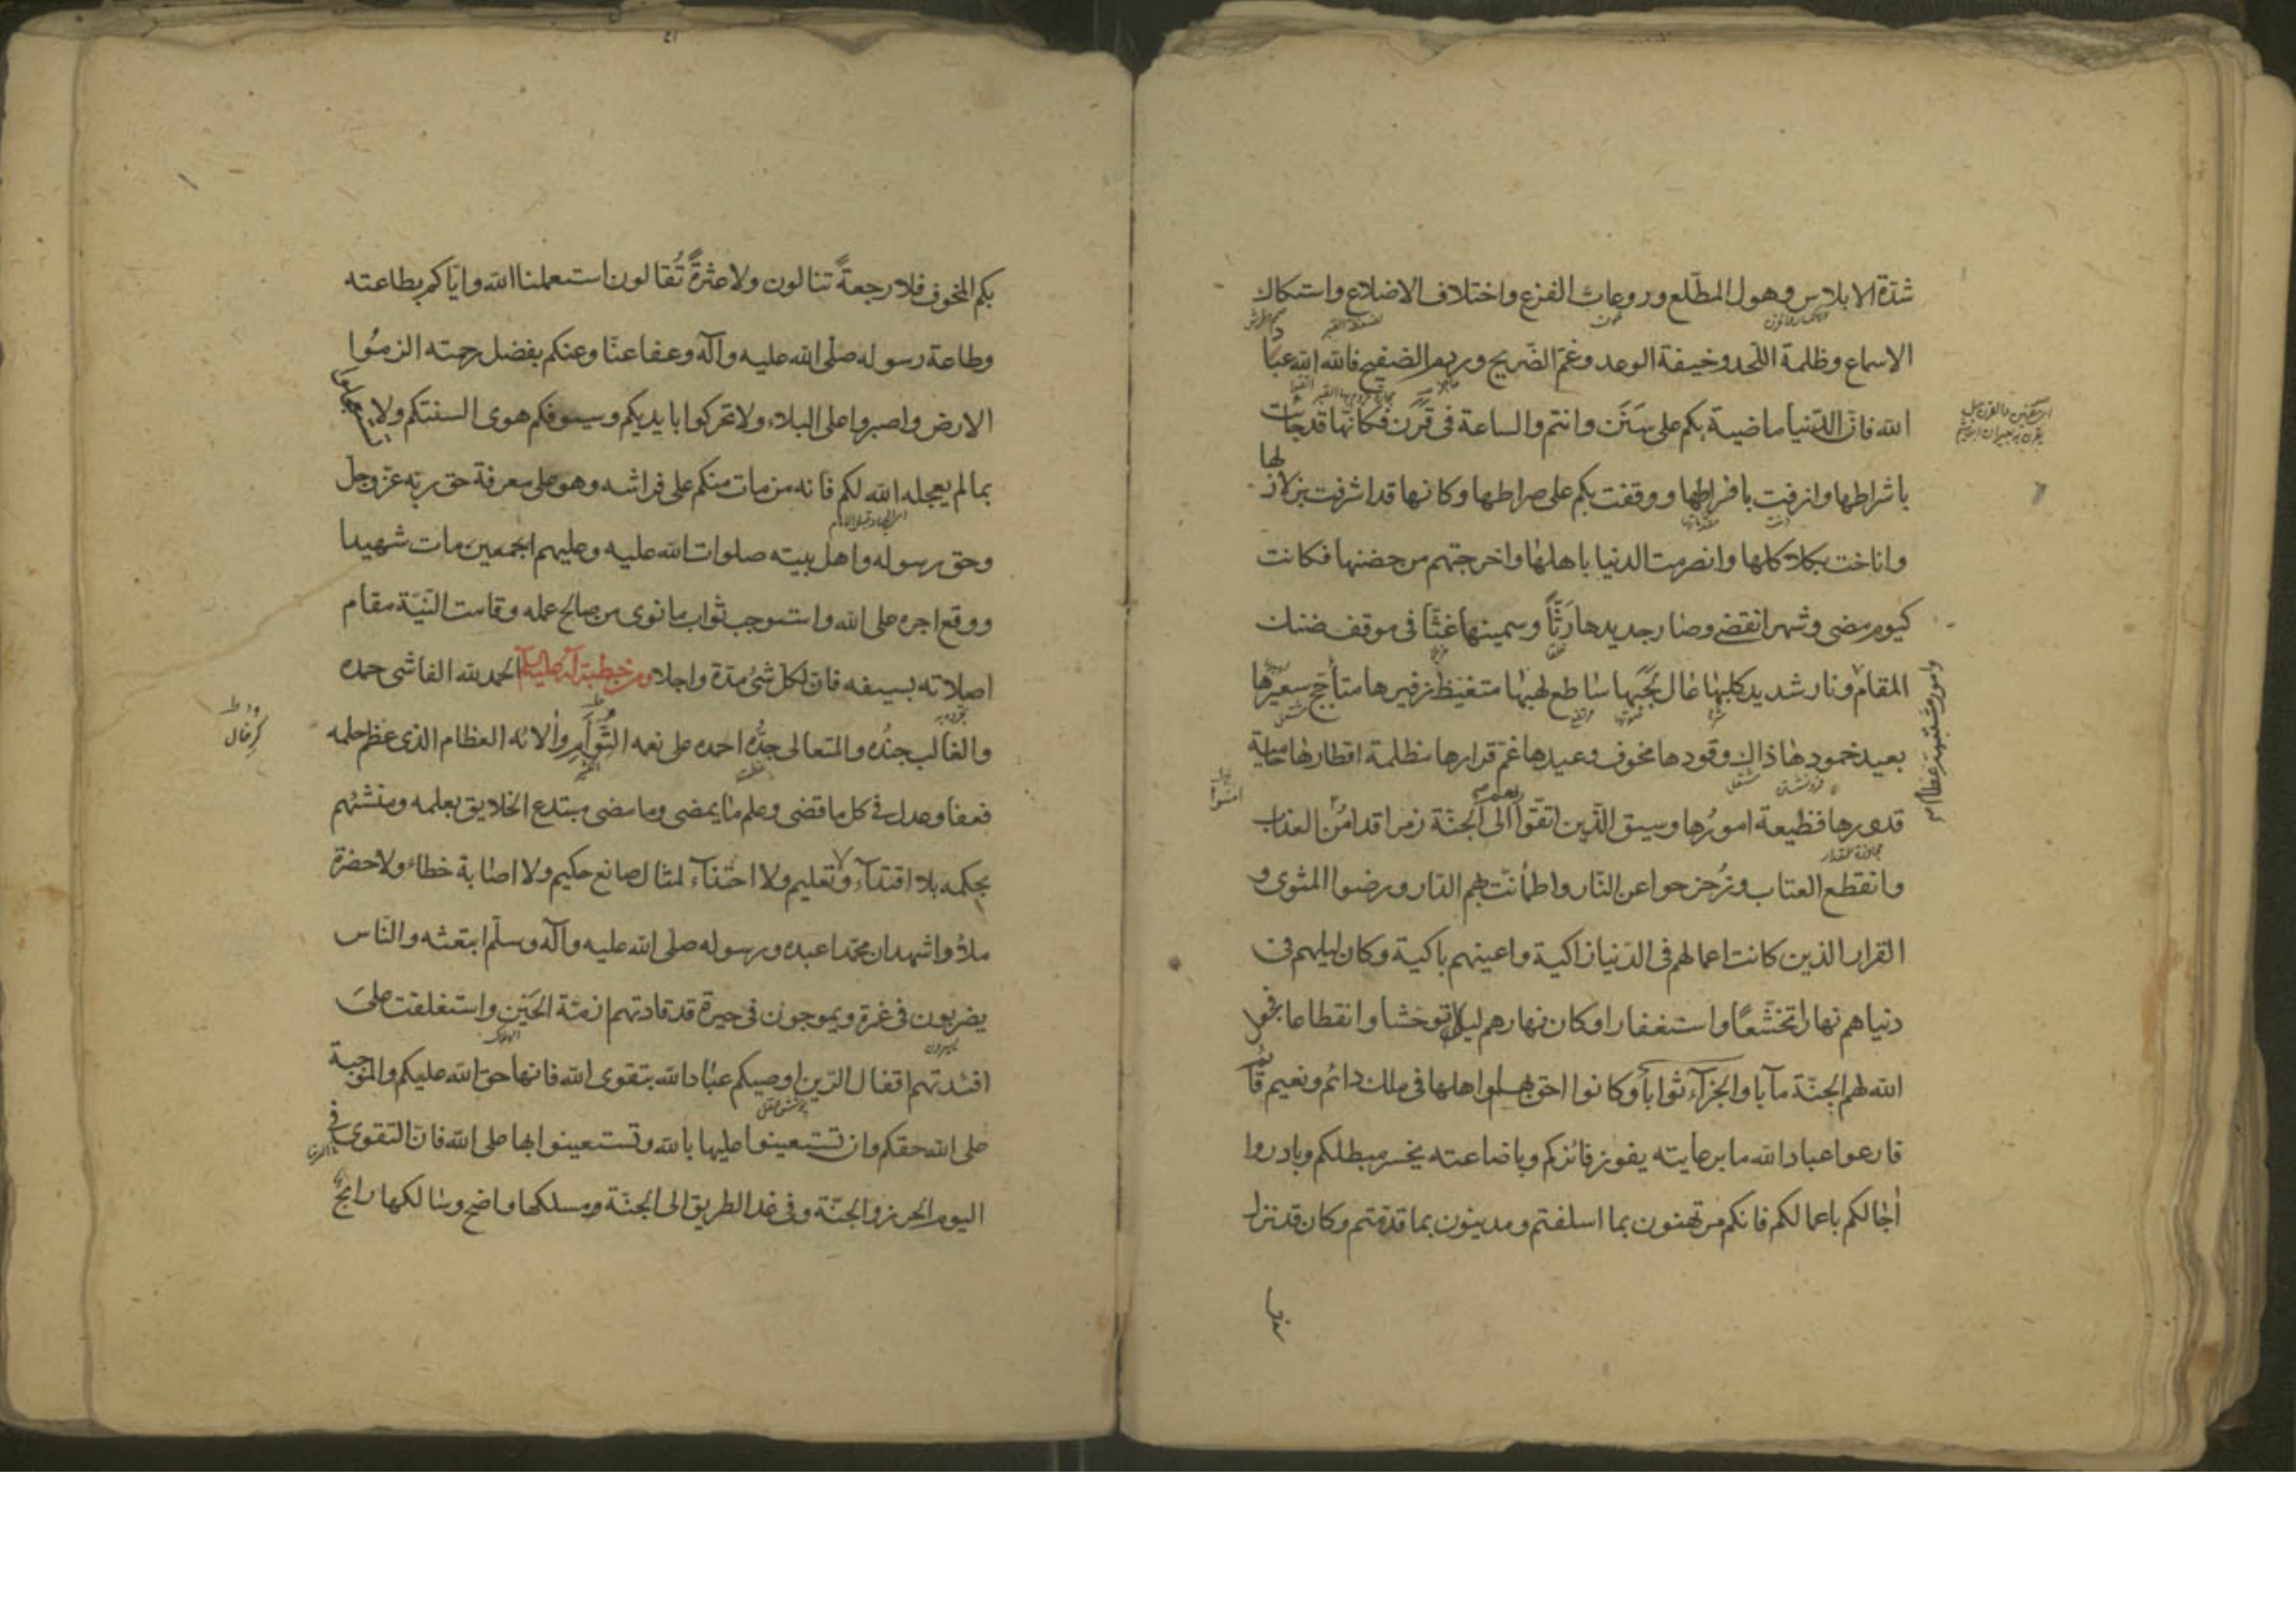 شدّة الابلاس وهول المطّلع وروعات الفزع واختلاف الاضلاع واستكاك
الاسماع وظلمة اللّحد وخيفة الوعد وغمّ الضّريح وردم الصّفيح فالله الله عباد
الله فانّ الدّنيا ماضية بكم على سَنَن وانتم والساعة فى قَرَن فكانّها قد جاءت
باشراطها وازفت بافراطها ووقفت بكم على صراطها وكانها قد اشرفت بزلازلها
واناخت بكلاكلها وانصرمت الدنيا باهلها واخرجتهم من حضنها فكانت
كيوم مضى وشهر انقضى وصار جديدها رَثّاً وسمينها غثّا فى موقف ضنك
المقام ونار شديد كلبها عال لَجَبها ساطع لهبها متغيّظ زفيرها متأجّج سعيرها
وامور مشتبهة عظام
بعيد خمودها ذاك وقودها مخوف وعيدها غمّ قرارها مظلمة اقطارها حامية
قدورها فظيعة امورُها وسيق الّذين اتّقوا الى الجنّة زمرا قد امن العذاب
وانقطع العتاب وزُحزحوا عن النّار واطمأنّت بهم الدّار ورضوا المثوى و
القرار الذين كانت اعمالهم فى الدّنيا زاكية واعينهم باكية وكان ليلهم فى
دنياهم نهارا تخشّعًا واستغفارا وكان نهارهم ليلا توحّشا وانقطاعا فجعل
الله لهم الجنّة مآبا والجزآء ثوابا وكانوا احق بها واهلها فى ملك دائم ونعيم قائم
فارعوا عباد الله ما برعايته يفوز فائزكم وباضاعته يخسر مبطلكم وبادروا
اٰجالكم باعمالكم فانكم مرتهنون بما اسلفتم ومدينون بما قدّمتم وكان قد نزل
بكم المخوف فلا رجعةً تنالون ولا عثرةً تُقالون استعملنا الله وايّاكم بطاعته
وطاعة رسوله صلّى الله عليه وآله وعفا عنّا وعنكم بفضل رحمته الزمُوا
الارض واصبروا على البلاء ولا تحركوا بايديكم وسيوفكم هوى السنتكم ولا تستعجلوا
بما لم يعجله الله لكم فانه من مات منكم على فراشه وهو على معرفة حق ربّه عزّ وجل
وحق رسوله واهل بيته صلوات الله عليه وعليهم اجمعين مات شهيدا
ووقع اجره على الله واستوجب ثواب ما نوى من صالح عمله وقامت النّيّة مقام
اصلاته بسيفه فان لكل شئ مدّة واجلا ومن خطبة له عليه السلام الحمد لله الفاشى حمده
والغالب جنُده والمتعالى جدُّه احمده على نعمه التُّوَأمِ واٰلائه العظام الذى عظم حلمه
فعفا وعدل فى كل ما قضى وعلم ما يمضى وما مضى مبتدع الخلايق بعلمه ومنشئهم
بحكمه بلا اقتدآء ولا تعليم ولا احتذآء لمثال صانع حكيم ولا اصابة خطاء ولا حضرة
ملأ واشهد ان محمّدا عبده ورسوله صلّى الله عليه وآله وسلّم ابتعثه والنّاس
يضربون فى غمرة ويموجون فى حيرة قد قادتهم ازمّة الحَيْن واستغلقت على
افئدتهم اقفال الرّين اوصيكم عباد الله بتقوى الله فانها حق الله عليكم والموجبة
على الله حقكم وان تستعينوا عليها بالله وتستعينوا بها على الله فان التقوى فى
اليوم الحرز والجنّة وفى غد الطريق الى الجنّة ومسلكها واضح وسالكها رابح